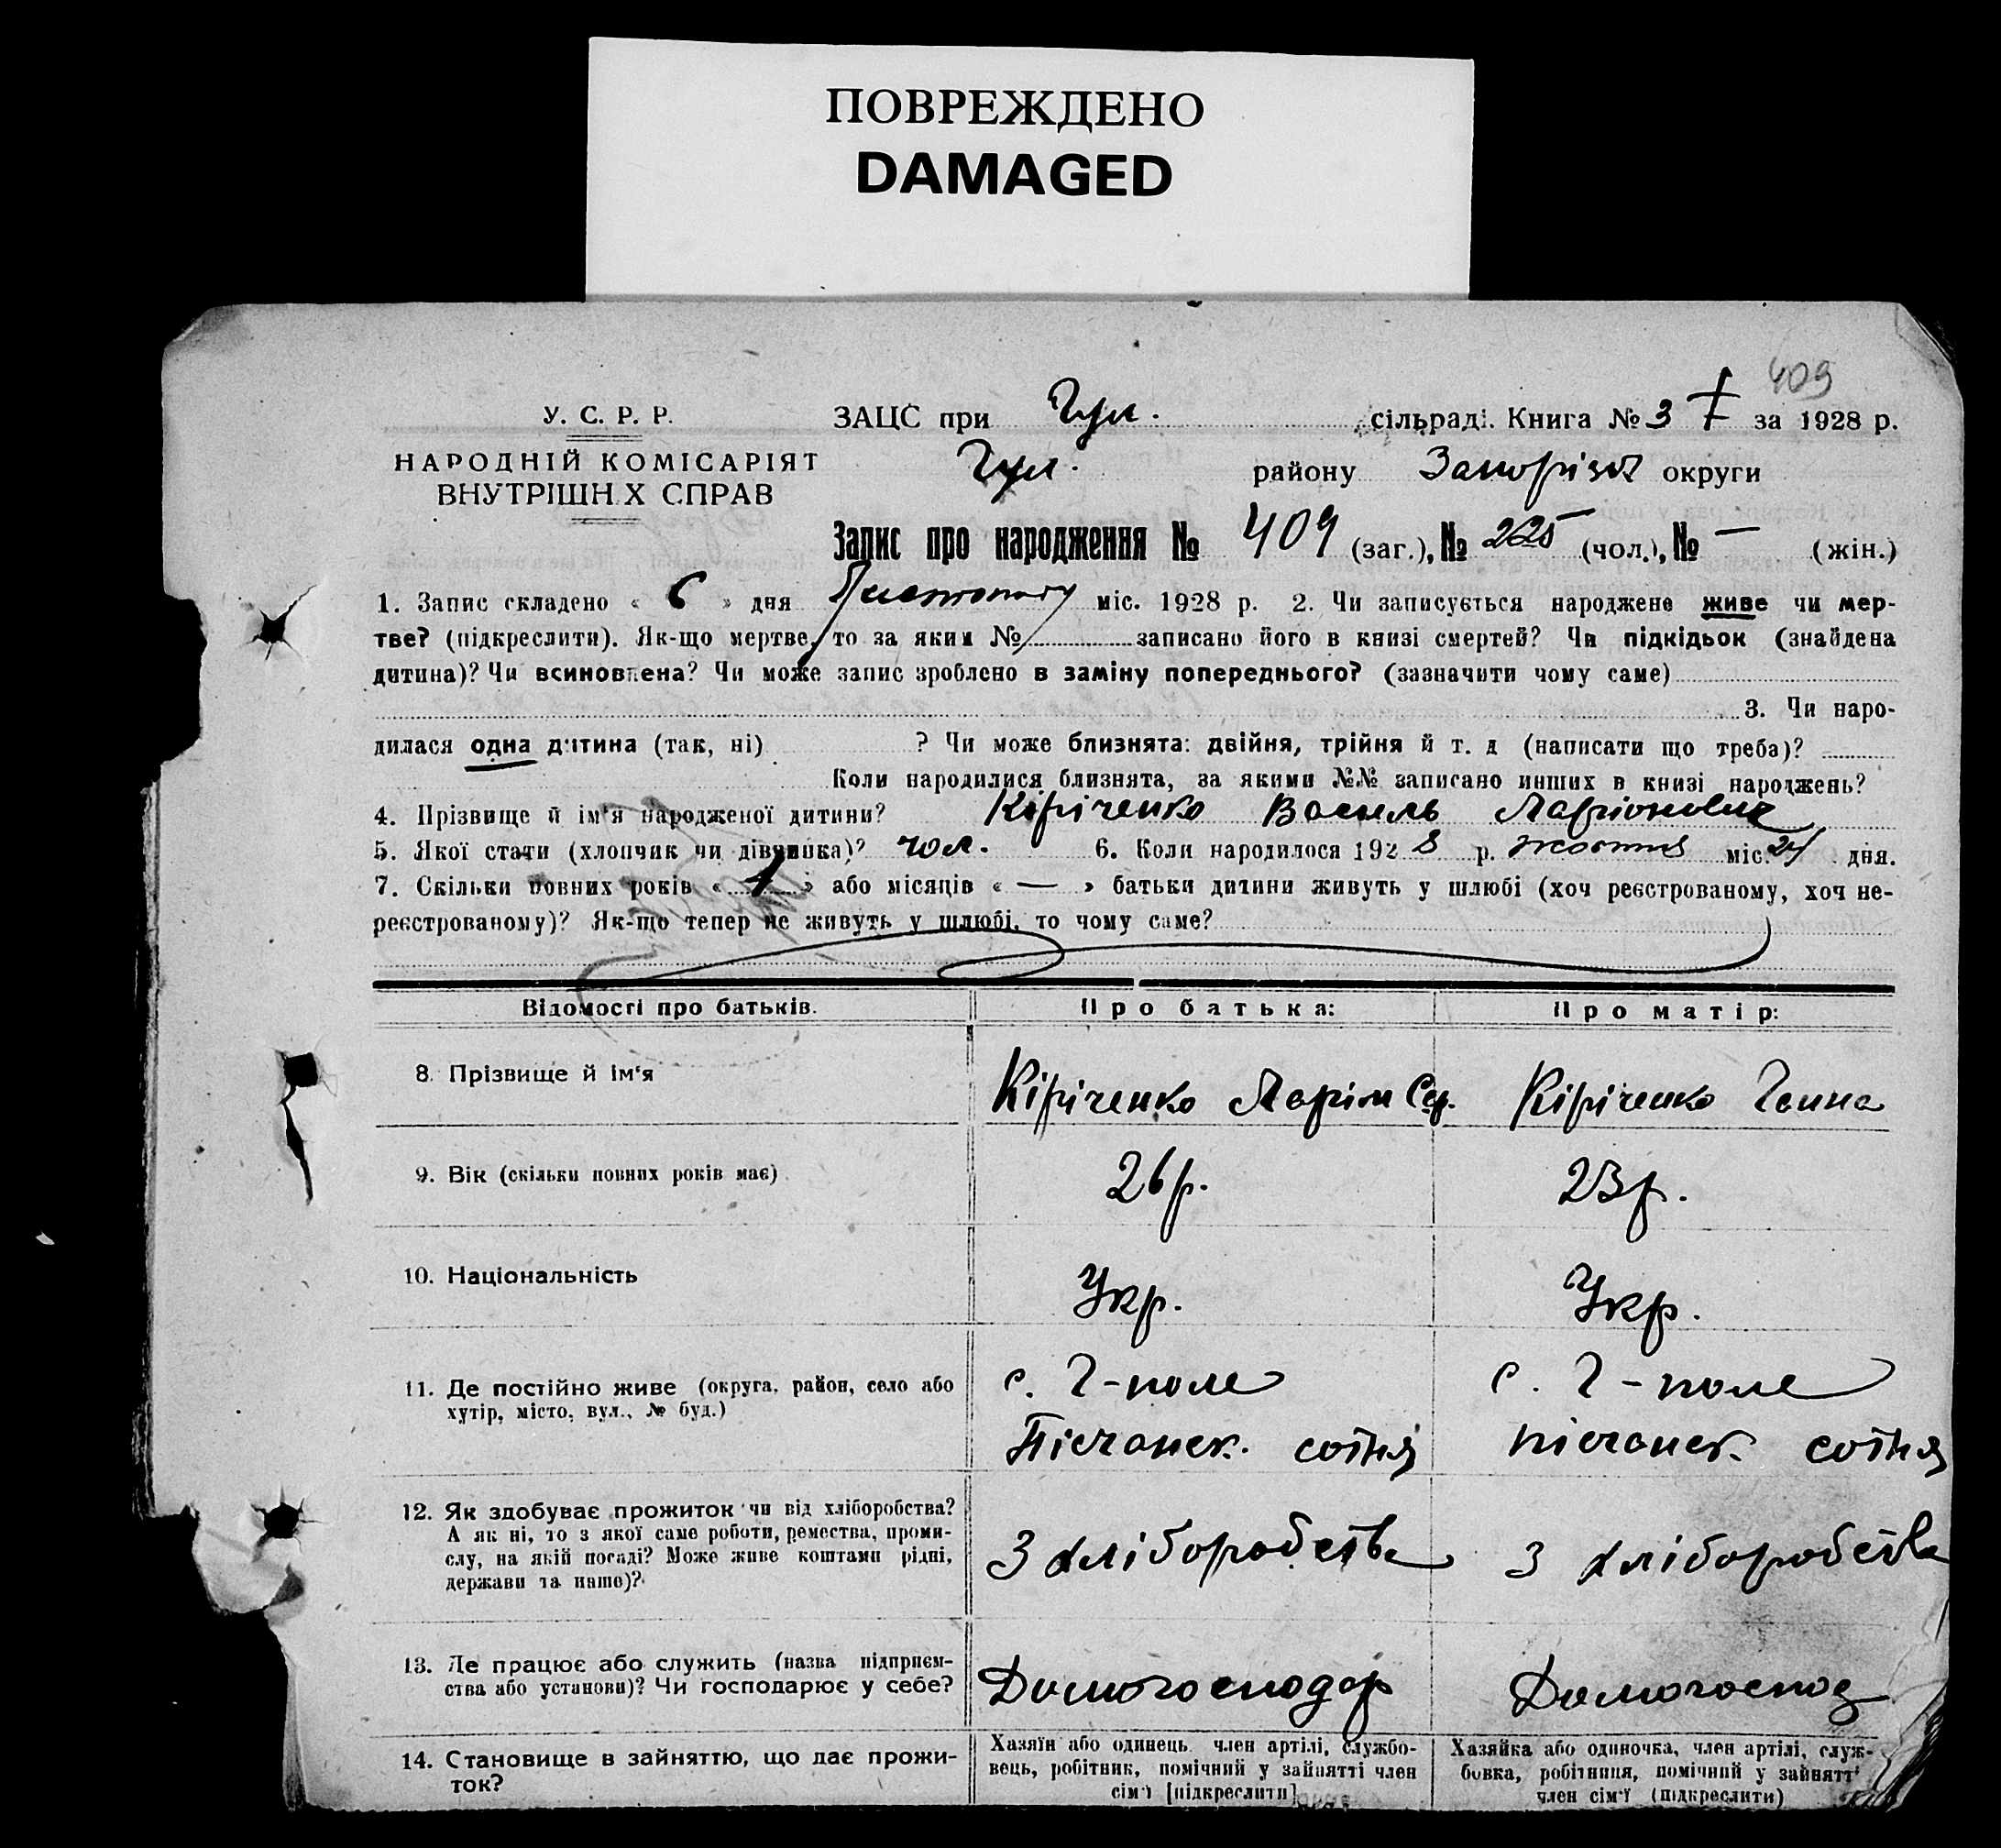 ПОВРЕЖДЕНО
DAMAGED
409
У. С. Р. Р.
НАРОДНІЙ КОМІСАРІЯТ
ВНУТРІШН Х СПРАВ
ЗАЦС при Гул. сільраді. Книга № 3 за 1928 р.
Гул. району Запоріз округи
Запис про народження № 409 (заг.), № 225 (чол.), № — (жін.)
1. Запис складено « 6 » дня Листопаду міс. 1928 р. 2. Чи записується народжене живе чи мер-
тве? (підкреслити). Як-що мертве, то за яким № записано його в книзі смертей? Чи підкідьок (знайдена
дитина)? Чи всиновлена? Чи може запис зроблено в заміну попереднього? (зазначити чому саме)
3. Чи наро-
дилася одна дитина (так, ні) ? Чи може близнята: двійня, трійня й т. д (написати що треба)?
Коли народилися близнята, за якими №№ записано инших в книзі народжень?
4. Прізвище й ім'я народженої дитини? Кіріченко Василь Ларіонович
5. Якої стати (хлопчик чи дівчинка)? чол. 6. Коли народилося 192 8 р. жовтня міс. 24 дня.
7. Скільки повних років « 1 » або місяців « — » батьки дитини живуть у шлюбі (хоч реєстрованому, хоч не-
реєстрованому)? Як-що тепер не живуть у шлюбі, то чому саме?
Відомості про батьків. Про батька: Про матір:
8. Прізвище й ім'я Кіріченко Ларіон Сер. Кіріченко Ганна
9. Вік (скільки повних років має) 26 р. 23 р.
10. Національність Укр. Укр.
11. Де постійно живе (округа, район, село або с. Г-поле с. Г-поле
хутір, місто, вул., № буд.) Пісчанск. сотня пісчанск. сотня
12. Як здобуває прожиток чи від хліборобства?
А як ні, то з якої саме роботи, ремества, проми-
слу, на якій посаді? Може живе коштами рідні, З хліборобства З хліборобства
держави та иншо)?
13. Де працює або служить (назва підприєм-
ства або установи)? Чи господарює у себе? Домогосподар Домогоспод
14. Становище в зайняттю, що дає прожи-
ток?
Хазяїн або одинець член артілі, службо-
вець, робітник, помічний у зайнятті член
сім'ї [підкреслити]
Хазяйка або одиночка, член артілі, служ-
бовка, робітниця, помічний у зайнятті
член сім'ї (підкреслити)